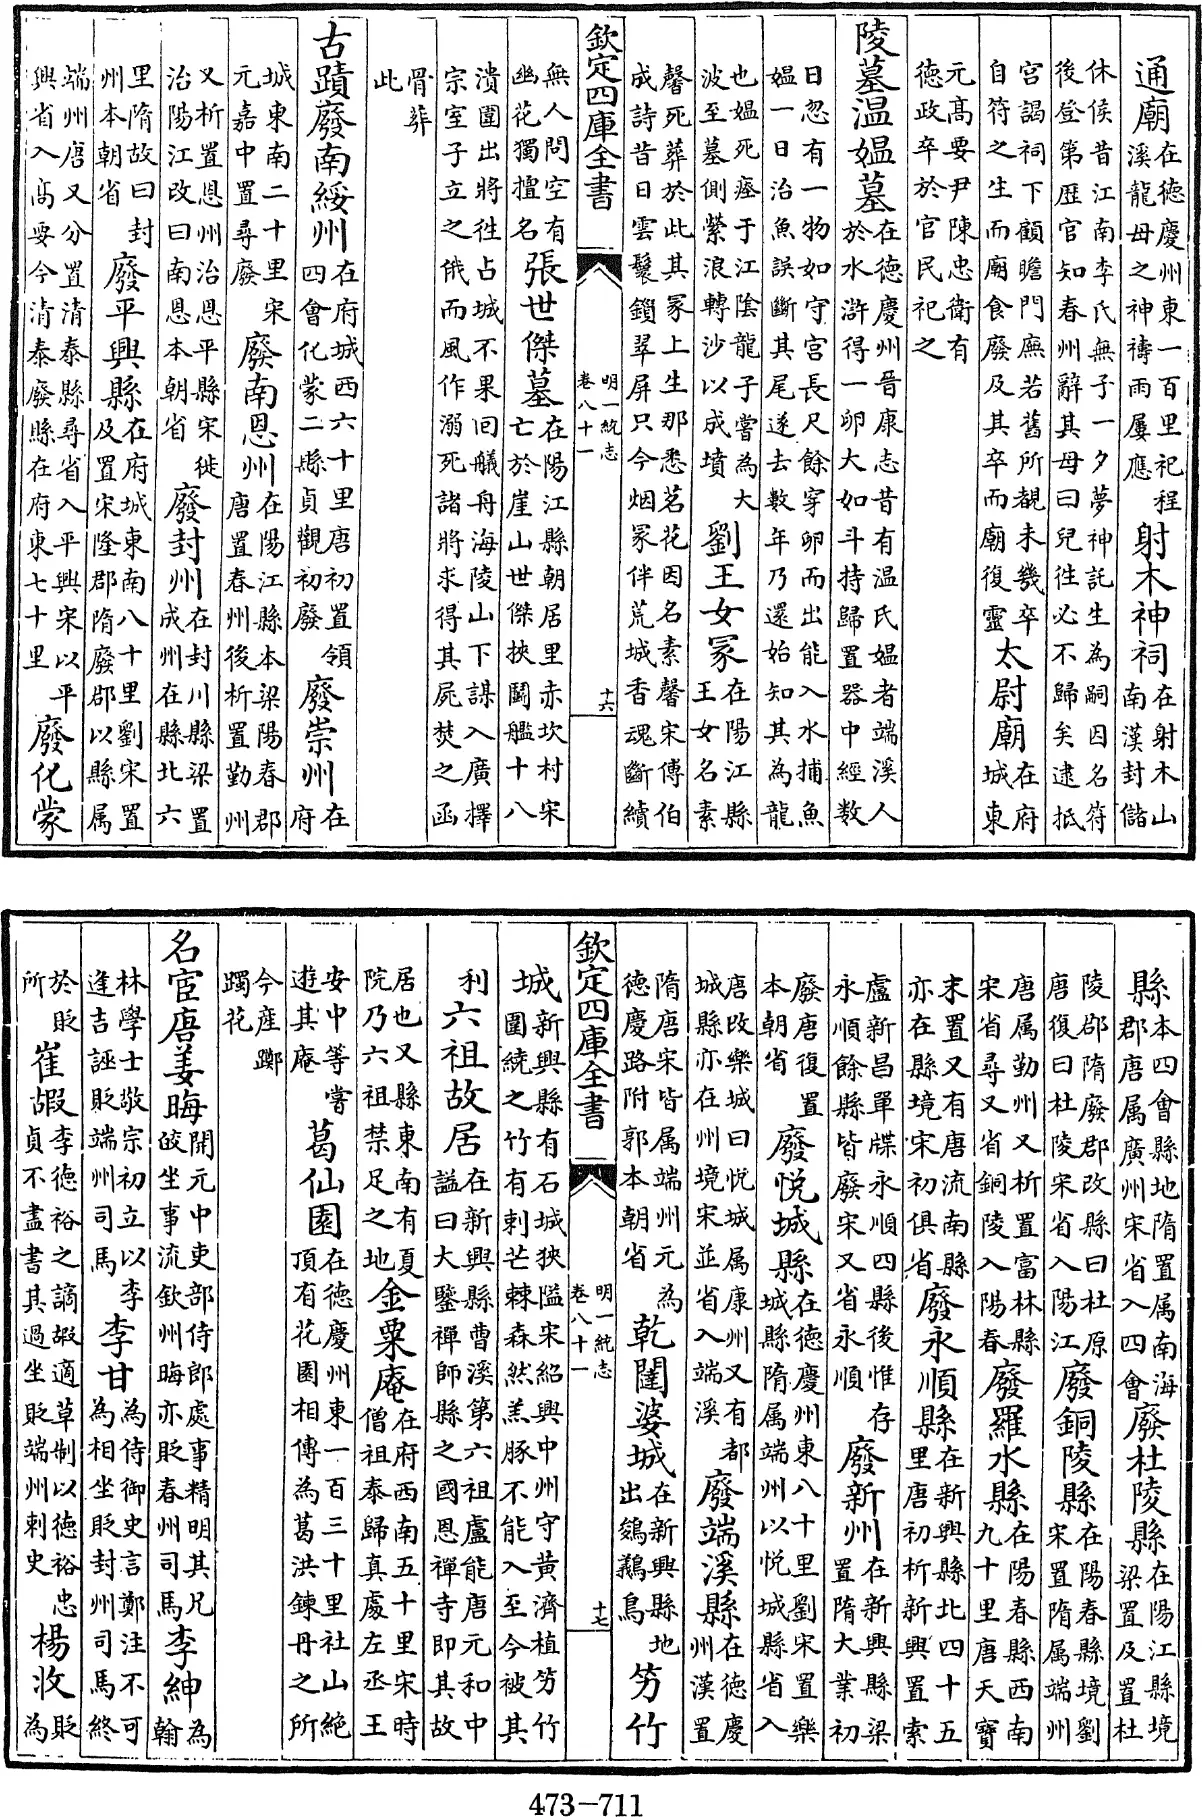 通廟在德慶州東一百里祀程溪龍母之神禱雨屢應射木神祠在射木山南漢封儲
休侯昔江南李氏無子一夕夢神託生為嗣因名符後登第歷官知春州辭其母曰兒徃必不歸矣逮抵
宫謁祠下顧瞻門廡若舊所覩未幾卒自符之生而廟食廢及其卒而廟復靈太尉廟在府城東
元髙要尹陳忠衛有德政卒於官民祀之
陵墓温媼墓在德慶州晉康志昔有温氏媼者端溪人於水滸得一卵大如斗持歸置器中經數
日忽有一物如守宫長尺餘穿卵而出能入水捕魚媼一日治魚誤斷其尾遂去數年乃還始知其為龍
也媼死瘞于江陰龍子嘗為大波至墓側縈浪轉沙以成墳劉王女冢在陽江縣王女名素
馨死葬於此其冢上生那悉茗花因名素馨宋傅伯成詩昔日雲鬟鎖翠屏只今烟冢伴荒城香魂斷續
欽定四庫全書 明一統志 卷八十一 十六
無人問空有幽花獨擅名張世傑墓在陽江縣朝居里赤坎村宋亡於崖山世傑挾鬬艦十八
潰圍出將徃占城不果回艤舟海陵山下謀入廣擇宗室子立之俄而風作溺死諸將求得其屍焚之函
骨葬此
古蹟廢南綏州在府城西六十里唐初置領四會化蒙二縣貞觀初廢廢崇州在府
城東南二十里宋元嘉中置尋廢廢南恩州在陽江縣本梁陽春郡唐置春州後析置勤州
又析置恩州治恩平縣宋徙治陽江改曰南恩本朝省廢封州在封川縣梁置成州在縣北六
里隋故曰封州本朝省廢平興縣在府城東南八十里劉宋置及置宋隆郡隋廢郡以縣属
端州唐又分置清泰縣尋省入平興宋以平興省入髙要今清泰廢縣在府東七十里廢化蒙
縣本四會縣地隋置属南海郡唐属廣州宋省入四會廢杜陵縣在陽江縣境梁置及置杜
陵郡隋廢郡改縣曰杜原唐復曰杜陵宋省入陽江廢銅陵縣在陽春縣境劉宋置隋属端州
唐属勤州又析置富林縣宋省尋又省銅陵入陽春廢羅水縣在陽春縣西南九十里唐天寶
末置又有唐流南縣亦在縣境宋初俱省廢永順縣在新興縣北四十五里唐初析新興置索
盧新昌單牒永順四縣後惟存永順餘縣皆廢宋又省永順廢新州在新興縣梁置隋大業初
廢唐復置本朝省廢悦城縣在德慶州東八十里劉宋置樂城縣隋属端州以悦城縣省入
唐改樂城曰悦城属康州又有都城縣亦在州境宋並省入端溪廢端溪縣在德慶州漢置
隋唐宋皆属端州元為德慶路附郭本朝省乾闥婆城在新興縣地出鷄鶒鳥竻竹
欽定四庫全書 明一統志 卷八十一 十七
城新興縣有石城狹隘宋紹興中州守黄濟植竻竹圍繞之竹有刺芒棘森然羔豚不能入至今被其
利六祖故居在新興縣曹溪第六祖盧能唐元和中謚曰大鑒禪師縣之國恩禪寺即其故
居也又縣東南有夏院乃六祖禁足之地金粟庵在府西南五十里宋時僧祖泰歸真處左丞王
安中等嘗遊其庵葛仙園在德慶州東一百三十里社山絶頂有花園相傳為葛洪鍊丹之所
今産躑躅花
名宦唐姜晦開元中吏部侍郎處事精明其兄皎坐事流欽州晦亦貶春州司馬李紳為翰
林學士敬宗初立以李逢吉誣貶端州司馬李甘為侍御史言鄭注不可為相坐貶封州司馬終
於貶所崔嘏李德裕之謫嘏適草制以德裕忠貞不盡書其過坐貶端州刺史楊收貶為
473-711